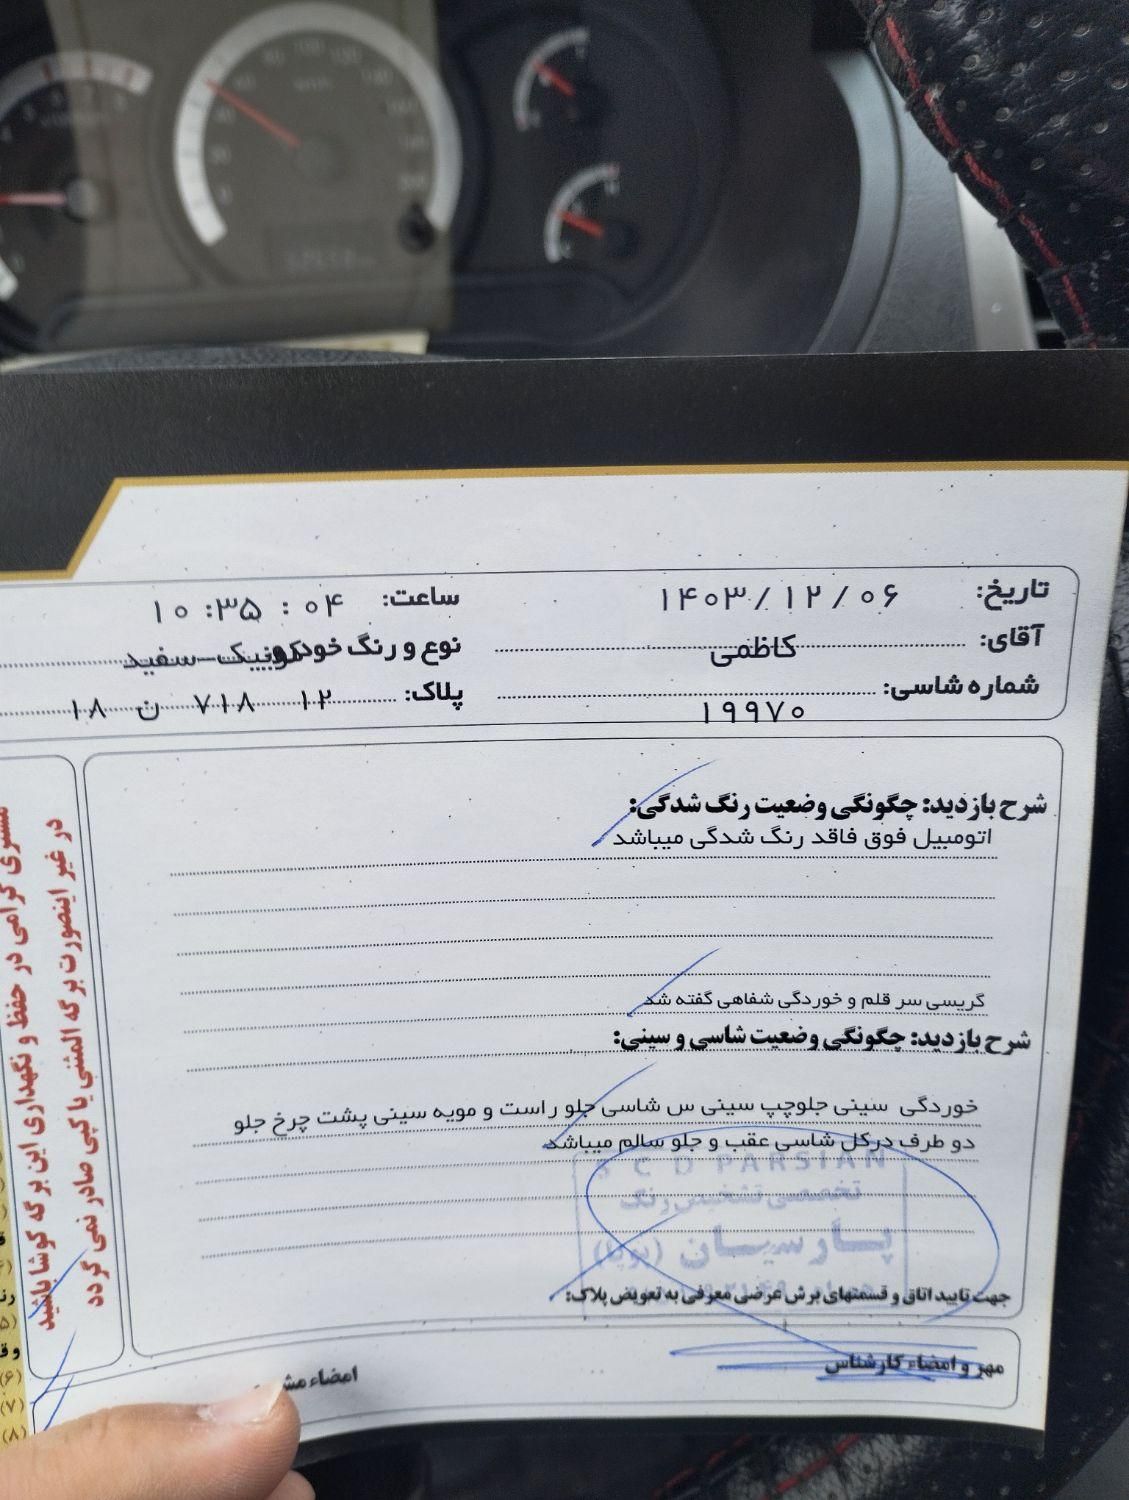 تاریخ: ۱۴۰۳/۱۲/۰۶
ساعت: ۱۰:۳۵:۰۴
آقای: کاظمی
نوع و رنگ خودرو: کوییک-سفید
شماره شاسی: ۱۹۹۷۰
پلاک: ۱۲ ۷۱۸ ن ۱۸
شرح بازدید: چگونگی وضعیت رنگ شدگی:
اتومبیل فوق فاقد رنگ شدگی میباشد
گریسی سر قلم و خوردگی شفاهی گفته شد
شرح بازدید: چگونگی وضعیت شاسی و سینی:
خوردگی سینی جلوچپ سینی س شاسی جلو راست و مویه سینی پشت چرخ جلو
دو طرف درکل شاسی عقب و جلو سالم میباشد
C D PARSIAN
تخصصی تشخیص رنگ
پارسیان (پویا)
جهت تایید اتاق و قسمتهای برش عرضی معرفی به تعویض پلاک:
مهر و امضاء کارشناس
امضاء
مشتری گرامی در حفظ و نگهداری این برگه کوشا باشید
در غیر اینصورت برگه المثنی یا کپی صادر نمی گردد
(۶)
(۷)
(۸)